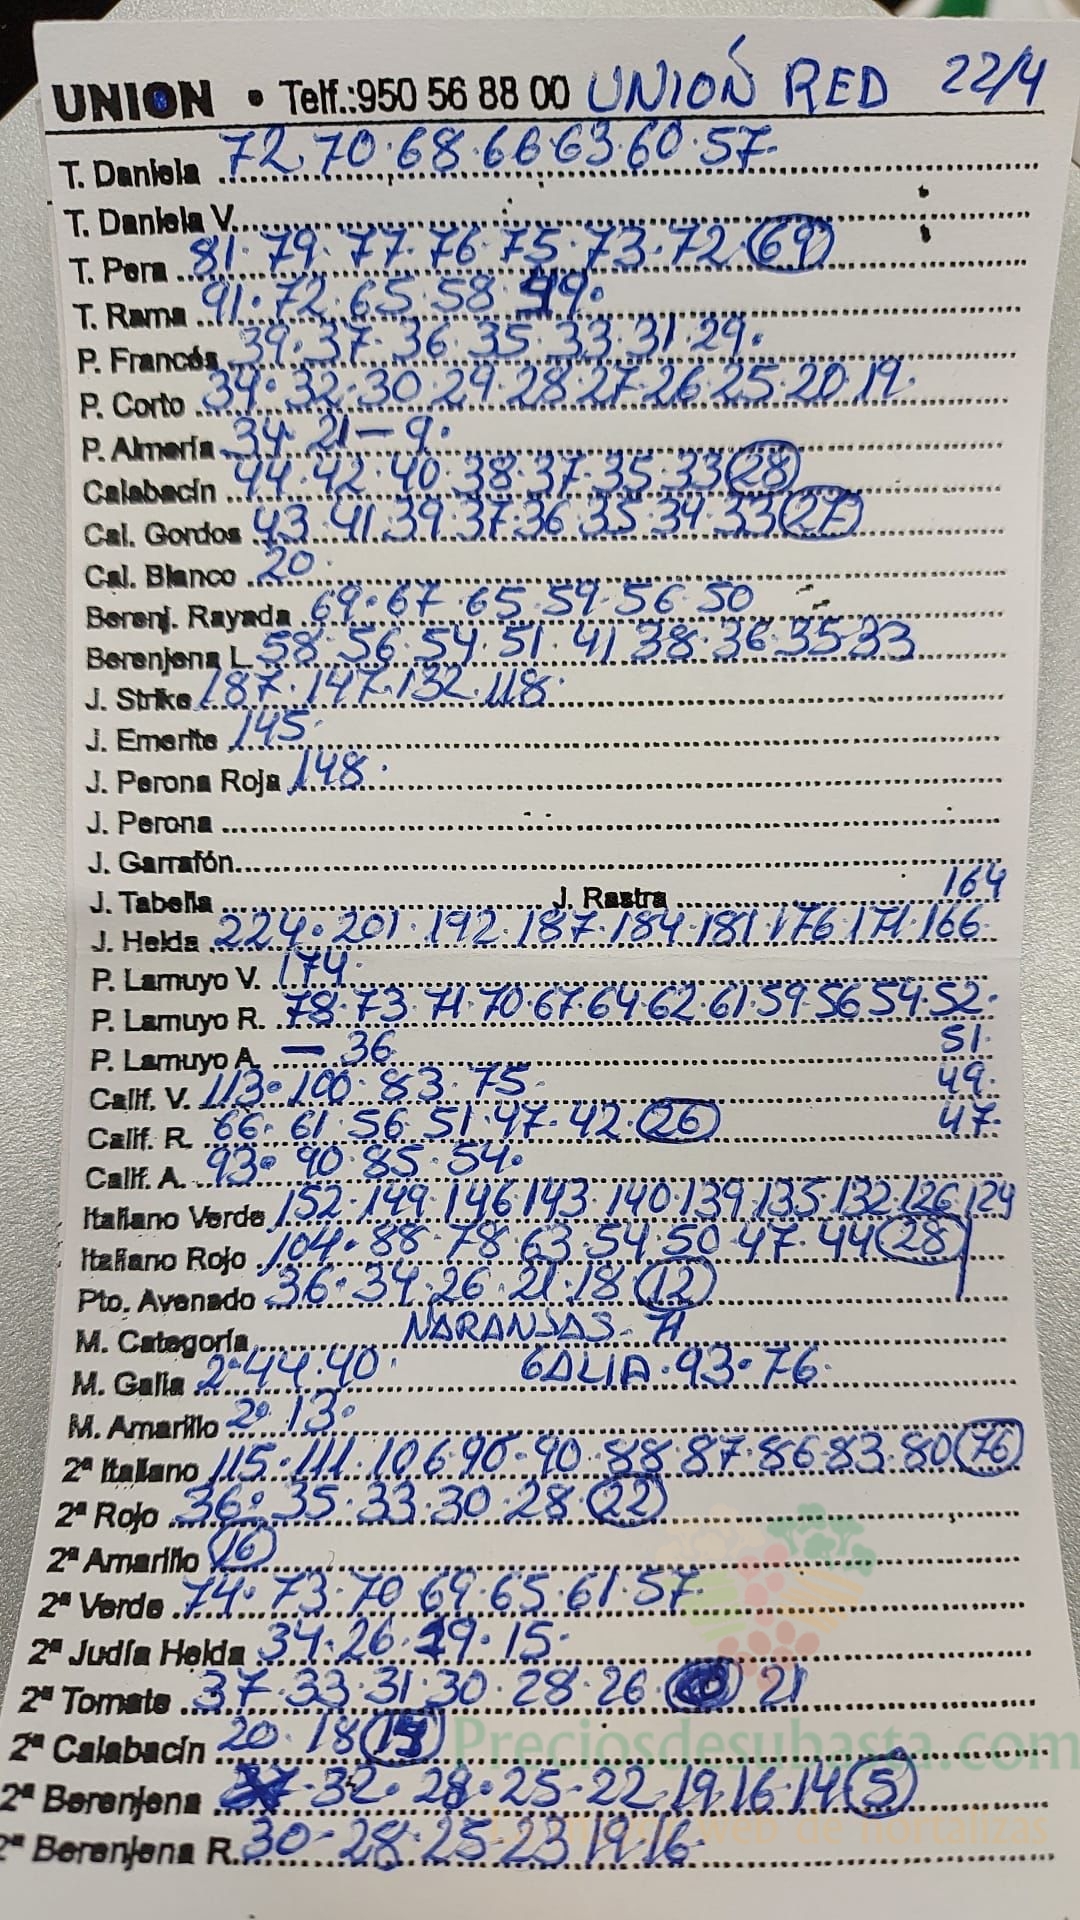 UNION • Telf.:950 56 88 00 UNIÓN RED 22/4
T. Daniela 72.70.68.66.63.60.57.
T. Daniela V.
T. Pera 81.79.77.76.75.73.72.(69)
T. Rama 91.72.65.58.49.
P. Francés 39.37.36.35.33.31.29.
P. Corto 34.32.30.29.28.27.26.25.20.19.
P. Almería 34.21—9.
Calabacín 44.42.40.38.37.35.33(28)
Cal. Gordos 43.41.39.37.36.35.34.33(27)
Cal. Blanco 20.
Berenj. Rayada 69.67.65.59.56.50
Berenjena L. 58.56.54.51.41 38.36.35.33
J. Strike 187.147.132.118.
J. Emerite 145.
J. Perona Roja 148.
J. Perona
J. Garrafón
J. Tabella J. Rastra 164
J. Helda 224.201.192.187.184.181.176.171.166.
P. Lamuyo V. 174.
P. Lamuyo R. 78.73.71.70.67.64.62.61.59.56.54.52.
P. Lamuyo A. — 36 51.
Calif. V. 113.100.83.75. 49.
Calif. R. 66.61.56.51.47.42.(26) 47.
Calif. A. 93.90.85.54.
Italiano Verde 152.149.146.143.140.139.135.132.126.124
Italiano Rojo 104.88.78.63.54.50.47.44(28)
Pto. Avenado 36.34.26.21.18(12)
M. Categoría NARANJAS-71
M. Galia 2ª44.40. GALIA.93.76.
M. Amarillo 2ª.13.
2ª Italiano 115.111.106.90.90.88.87.86.83.80(76)
2ª Rojo 36.35.33.30.28.(22)
2ª Amarillo (16)
2ª Verde 74.73.70.69.65.61.57.
2ª Judía Helda 34.26.19.15.
2ª Tomate 37.33.31.30.28.26. 21
2ª Calabacín 20.18
Preciosdesubasta.com
2ª Berenjena 32.28.25.22.19.16.14(5)
web de hortalizas
2ª Berenjena R. 30-28.25.23.19.16.